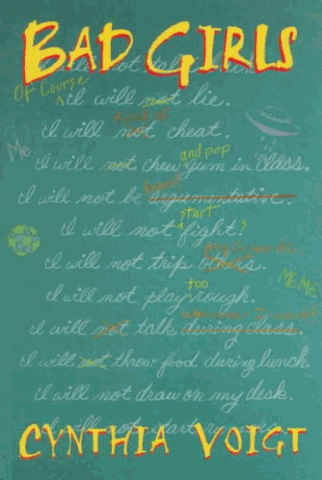 BAD GIRLS
Of Course
I will not lie.
I will not cheat.
Me
and pop
I will not chew gum in class.
I will not be argumentative.
start
I will not fight!
I will not trip others.
ME ME
too
I will not play rough.
I will not talk during class.
I will not throw food during lunch.
I will not draw on my desk.
CYNTHIA VOIGT